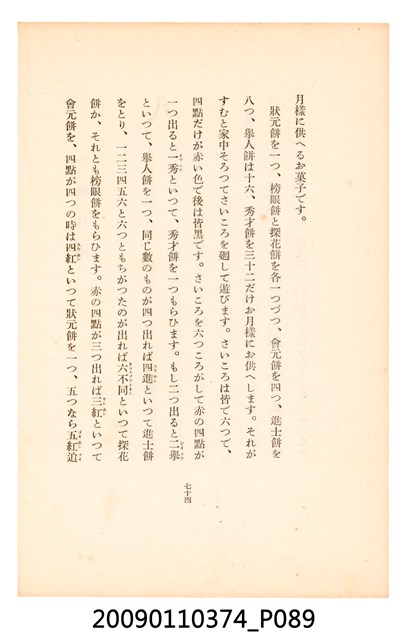 月樣に供へるお菓子です。
狀元餅を一つ、榜眼餅と探花餅を各一つづつ、會元餅を四つ、進士餅を
八つ、擧人餅は十六、秀才餅を三十二だけお月樣にお供へします。それが
すむと家中そろつてさいころを廻して遊びます。さいころは皆で六つで、
四點だけが赤い色で後は皆黑です。さいころを六つころがして赤の四點が
一つ出ると一秀といつて、秀才餅を一つもらひます。もし二つ出ると二擧
といつて、擧人餅を一つ、同じ數のものが四つ出れば四進といつて進士餅
をとり、一二三四五六と六つともちがつたのが出れば六不同といつて探花
餅か、それとも榜眼餅をもらひます。赤の四點が三つ出れば三紅といつて
會元餅を、四點が四つの時は四紅といつて狀元餅を一つ、五つなら五紅追
七十四
20090110374_P089